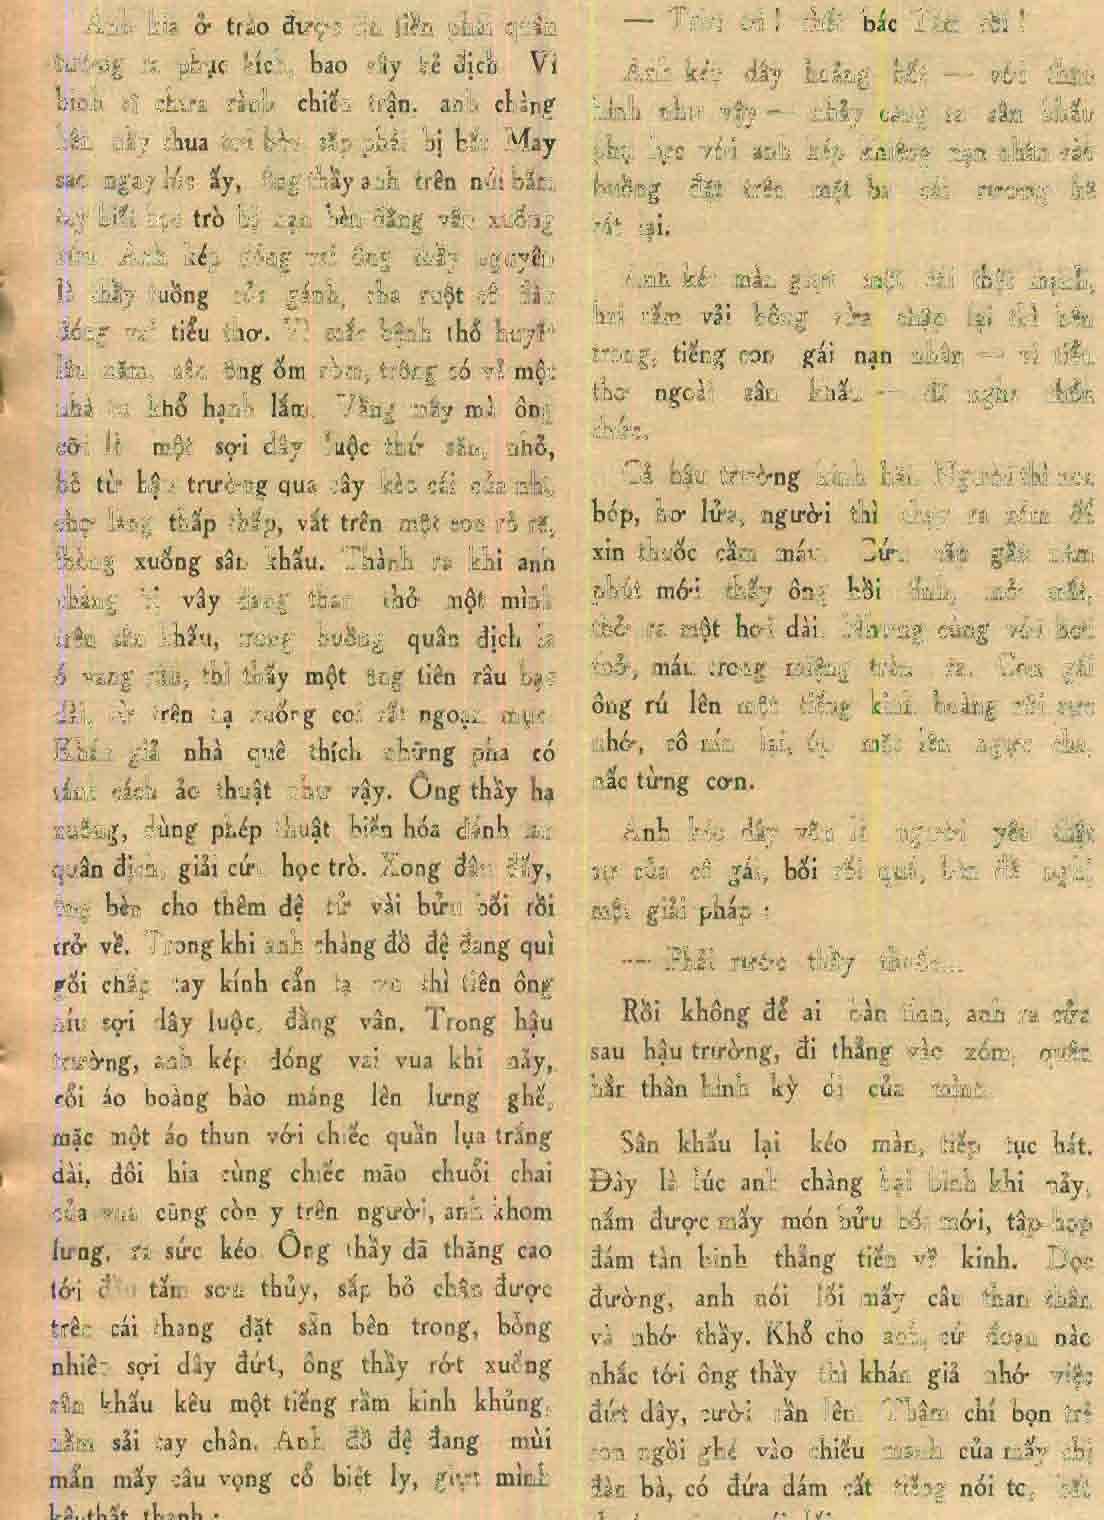 Anh kia ở trào được ... tiền phải quân
tướng ra phục kích, bao vây kẻ địch. Vì
binh sĩ chưa rành chiến trận, anh chàng
bèn ... thua ... sắp phải bị bắt. May
sao ngay lúc ấy, ông thầy anh trên núi bấm
tay biết học trò bị nạn bèn đằng vân xuống
cứu. Anh kép đóng vai ông thầy nguyên
là thầy tuồng của gánh, cha ruột cô đào
đóng vai tiểu thơ. Vì mắc bệnh thổ huyết
lâu năm, nên ông ốm ròm, trông có vẻ một
nhà tu khổ hạnh lắm. Vầng mây mà ông
cỡi là một sợi dây luộc thứ săn, nhỏ,
bỏ từ hậu trường qua cây kèo cái của nhà
chợ làng thấp thấp, vắt trên một con rò rẽ,
thòng xuống sân khấu. Thành ra khi anh
chàng bị vây đang than thở một mình
trên sân khấu, trong buồng quân địch la
ó vang rân, thì thấy một ông tiên râu bạc
dài, từ trên hạ xuống coi rất ngoạn mục.
Khán giả nhà quê thích những pha có
tánh cách ảo thuật như vậy. Ông thầy hạ
xuống, dùng phép thuật biến hóa đánh tan
quân địch, giải cứu học trò. Xong đâu đấy,
ông bèn cho thêm đệ tử vài bửu bối rồi
trở về. Trong khi anh chàng đồ đệ đang quì
gối chắp tay kính cẩn tạ ơn thì tiên ông
níu sợi dây luộc, đằng vân. Trong hậu
trường, anh kép đóng vai vua khi nảy,
cởi áo hoàng bào máng lên lưng ghế,
mặc một áo thun với chiếc quần lụa trắng
dài, đôi hia cùng chiếc mão chuỗi chai
của vua cũng còn y trên người, anh khom
lưng, ra sức kéo. Ông thầy đã thăng cao
tới đầu tấm sơn thủy, sắp bỏ chân được
trên cái thang đặt sẵn bên trong, bỗng
nhiên sợi dây đứt, ông thầy rớt xuống
sân khấu kêu một tiếng rầm kinh khủng,
nằm sải tay chân. Anh đồ đệ đang mùi
mẫn mấy câu vọng cổ biệt ly, giựt mình
kêu thất thanh :
— Trời ơi ! chết bác Tám rồi !
Anh kéo dây hoảng hốt — với thân
hình như vậy — nhảy càng ra sân khấu
phụ lực với anh kép khiêng nạn nhân vào
buồng đặt trên mặt ba cái rương kê
sát lại.
Anh kéo màn giựt một cái thật mạnh,
hai tấm vải bông vừa chập lại thì bên
trong, tiếng con gái nạn nhân — vì tiểu
thơ ngoài sân khấu — đã nghe thổn
thức.
Cả hậu trường kinh hãi. Người thì xoa
bóp, hơ lửa, người thì chạy ra xóm để
xin thuốc cầm máu. Cứu ... gần năm
phút mới thấy ông hồi tỉnh, mở mắt,
thở ra một hơi dài. Nhưng cùng với hơi
thở, máu trong miệng trào ra. Con gái
ông rú lên một tiếng kinh hoàng rồi sực
nhớ, cô nín lại, úp mặt lên ngực cha,
nấc từng cơn.
Anh kéo dây vốn là người yêu thật
sự của cô gái, bối rối quá, bèn đề nghị
một giải pháp :
— Phải rước thầy thuốc...
Rồi không để ai bàn tính, anh ra cửa
sau hậu trường, đi thẳng vào xóm, quên
hẳn thân hình kỳ dị của mình.
Sân khấu lại kéo màn, tiếp tục hát.
Đây là lúc anh chàng bại binh khi nảy,
nắm được mấy món bửu bối mới, tập hợp
đám tàn binh thẳng tiến về kinh. Dọc
đường, anh nói lối mấy câu than thân
và nhớ thầy. Khổ cho anh, cứ đoạn nào
nhắc tới ông thầy thì khán giả nhớ việc
đứt dây, cười rần lên. Thậm chí bọn trẻ
con ngồi ghé vào chiếu manh của mấy chị
đàn bà, có đứa dám cất tiếng nói to, bắt